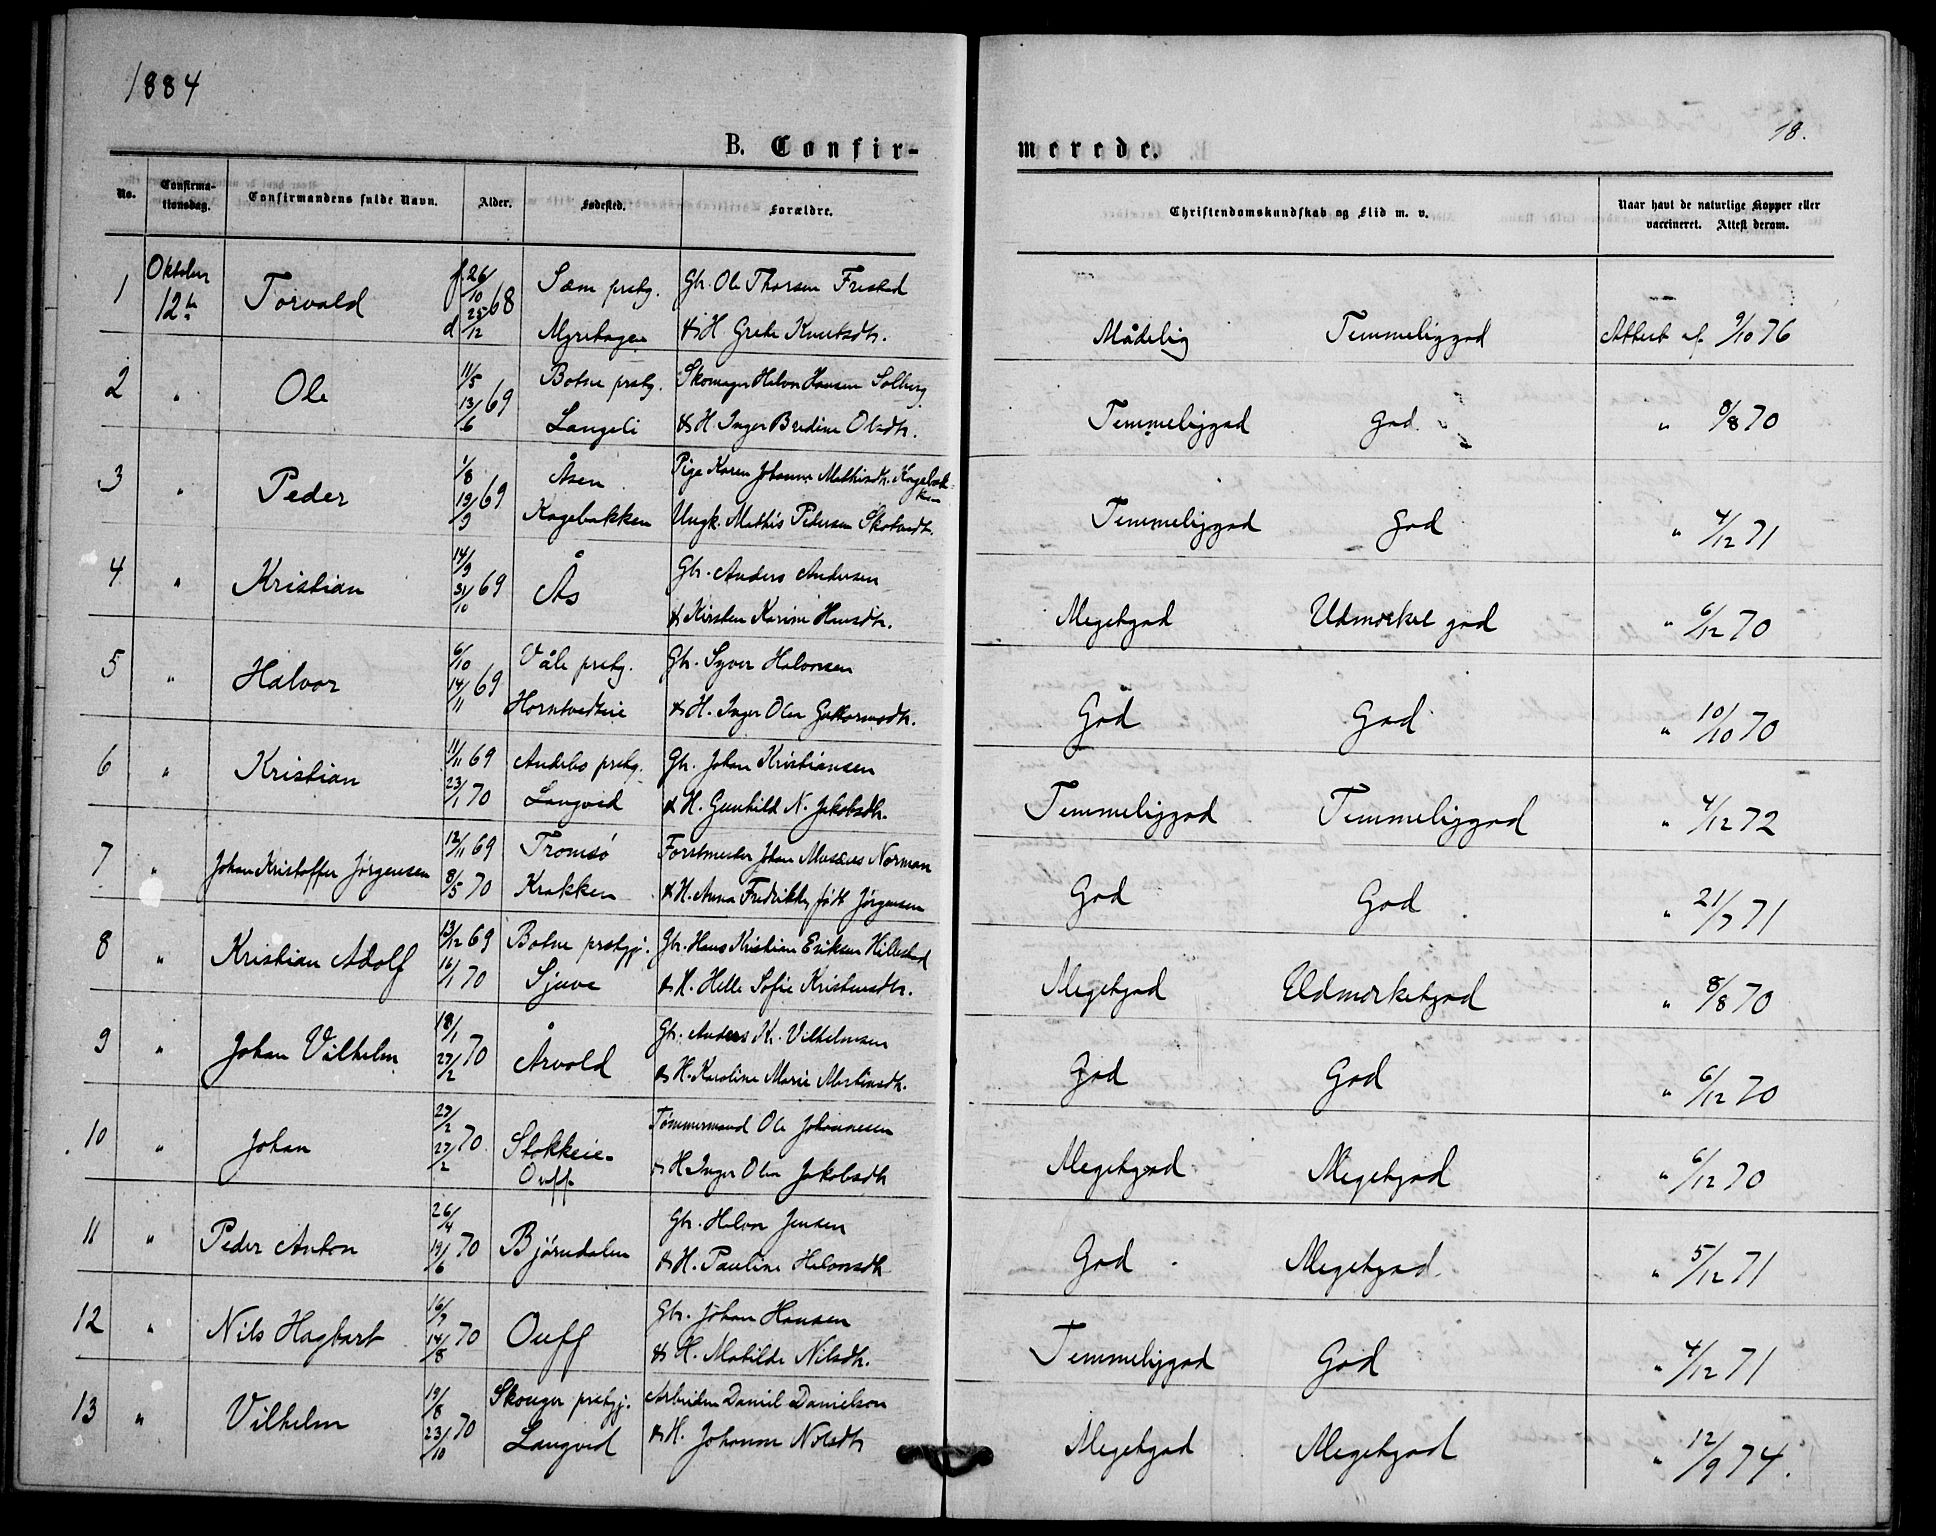 1884
18.
B. Confirmerede.
No. Confirmationsdag. Confirmandens fulde Navn. Alder. Fødested. Forældre. Christendomskundskab og Flid m. v. Naar havt de naturlige Kopper eller vaccineret. Attest derom.
1 Oktober 12te Torvald f 26/10 68 d 25/12 Sæm prstg. Gbr. Ole Thorsen Frested
Myrehagen & H. Grete Knutsdtr. Mådelig Temmeliggod Attest af 9/10 76
2 " Ole 11/5 13/6 69 Botne prstg. Skomager Halvor Hansen Solberg
Langeli & H. Inger Bredine Olsdtr. Temmeliggod God " 8/8 70
3 " Peder 1/8 19/9 69 Åsen Pige Karen Johanne Mathisdtr. Kagebakken
Kagebakken Ungk. Mathis Pedersen Temmeliggod God " 4/12 71
4 " Kristian 14/9 31/10 69 Ås Gbr. Anders Andersen
& Kirsten Karine Hansdtr. Megetgod Udmerket god " 6/12 70
5 " Halvor 6/10 14/11 69 Våle prstg. Gbr. Syver Halvorsen
Horntvedteie & H. Inger Olea Guttormsdtr. God God " 10/10 70
6 " Kristian 11/11 69 Andebo prstg. Gbr. Johan Kristiansen
23/1 70 Langved & H. Gunhild N. Jakobsdtr. Temmeliggod Temmeliggod " 4/12 72
7 " Johan Kristoffer Jørgensen 12/11 69 Tromsø Forstmester Johan Musæus Norman
8/5 70 Krakken & H. Anna Fredrikke født Jørgensen God God " 21/7 71
8 " Kristian Adolf 13/12 69 Botne prstgj. Gbr. Hans Kristian Eriksen Hillestad
16/1 70 Sjuve & H. Helle Sofie Kristensdtr. Megetgod Udmerketgod " 8/8 70
9 " Johan Vilhelm 18/1 27/2 70 Årvold Gbr. Anders K. Vilhelmsen
& H. Karoline Marie Martinsdtr. God God " 6/12 70
10 " Johan 27/2 70 Stokkeie- Tømmermand Ole Johannesen
Ouff & H. Inger Olea Jakobsdtr Megetgod Megetgod " 6/12 70
11 " Peder Anton 26/4 19/6 70 Bjørndalen Gbr. Halvor Jensen
& H. Pauline Halvorsdtr God Megetgod " 5/12 71
12 " Nils Hagbart 16/7 14/8 70 Ouff Gbr. Johan Hansen
& H. Matilde Nilsdtr. Temmeliggod God " 4/12 71
13 " Vilhelm 19/8 23/10 70 Skouger prstgj. Arbeider Daniel Danielson
Langved & H. Johanne Nilsdtr Megetgod Megetgod " 12/9 74.